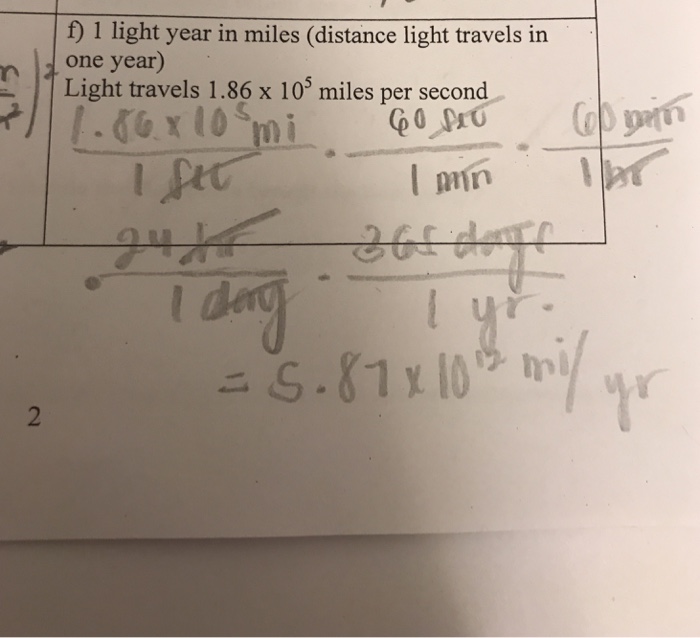 f) 1 light year in miles (distance light travels in
one year)
Light travels 1.86 x 10⁵ miles per second
1.86 x 10⁵ mi 60 sec 60 min
1 sec · 1 min · 1 hr
24 hr 365 days
· 1 day · 1 yr.
= 5.87 x 10¹² mi/yr
2